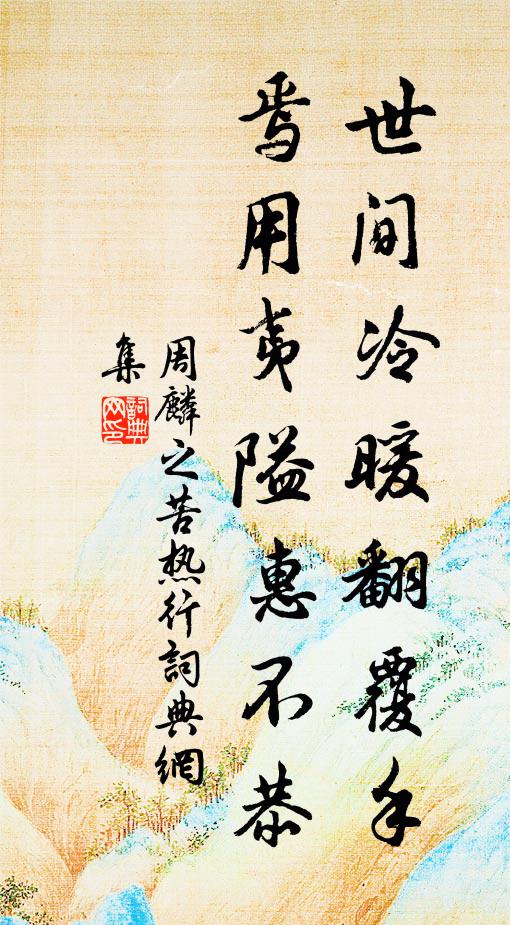 世间冷暖翻覆手
焉用夷隘惠不恭
周麟之苦热行詞典網
集
詞典
网印